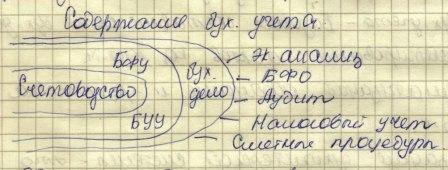 Содержание бух. учета.
Эк. анализ
БФУ
бух. дело
БФО
Счетоводство
Аудит
БУУ
Налоговый учет
Сметные процедуры